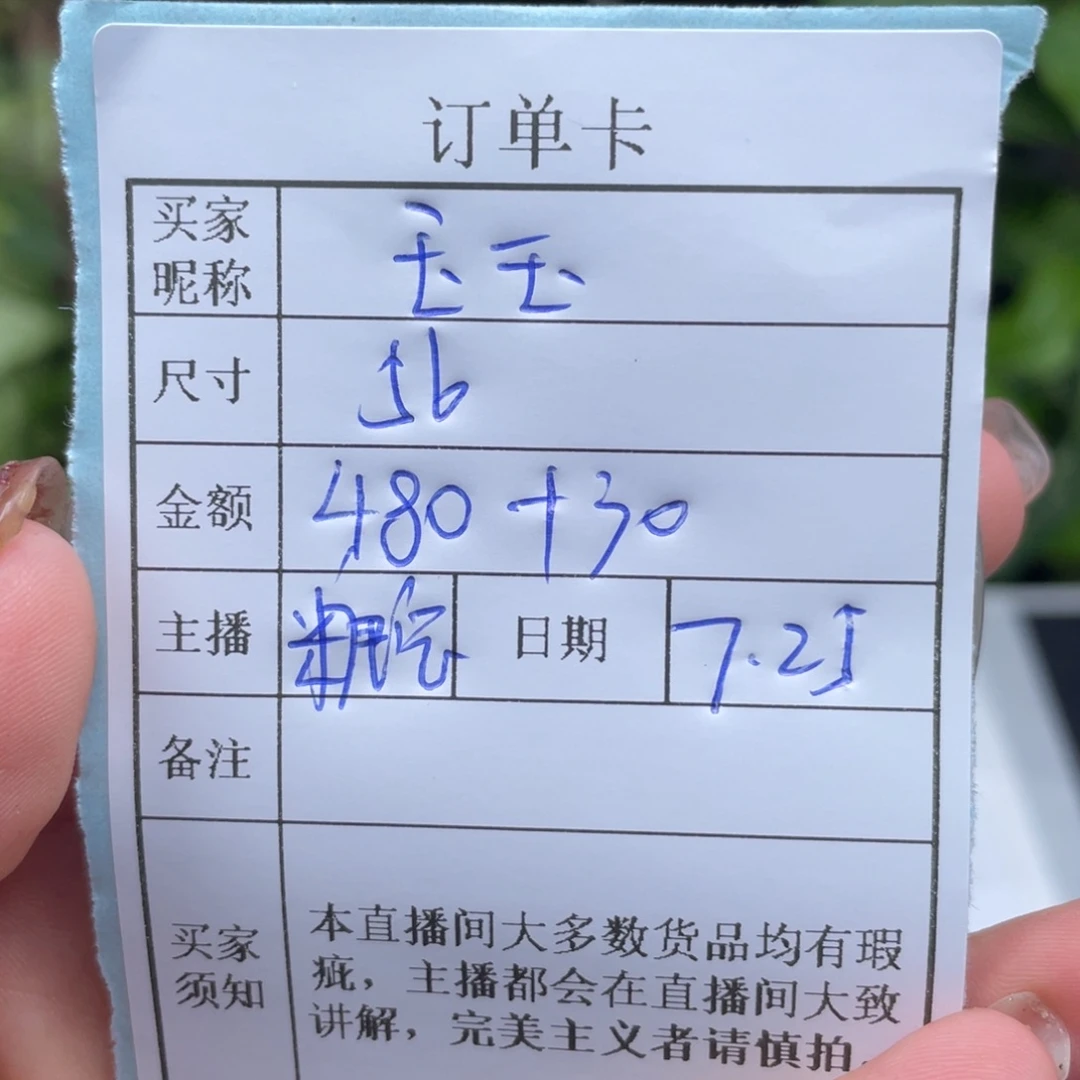 订单卡
买家
昵称
玉玉
尺寸 56
金额 480+30
主播 日期 7.25
备注
买家
须知
本直播间大多数货品均有瑕
疵，主播都会在直播间大致
讲解，完美主义者请慎拍.